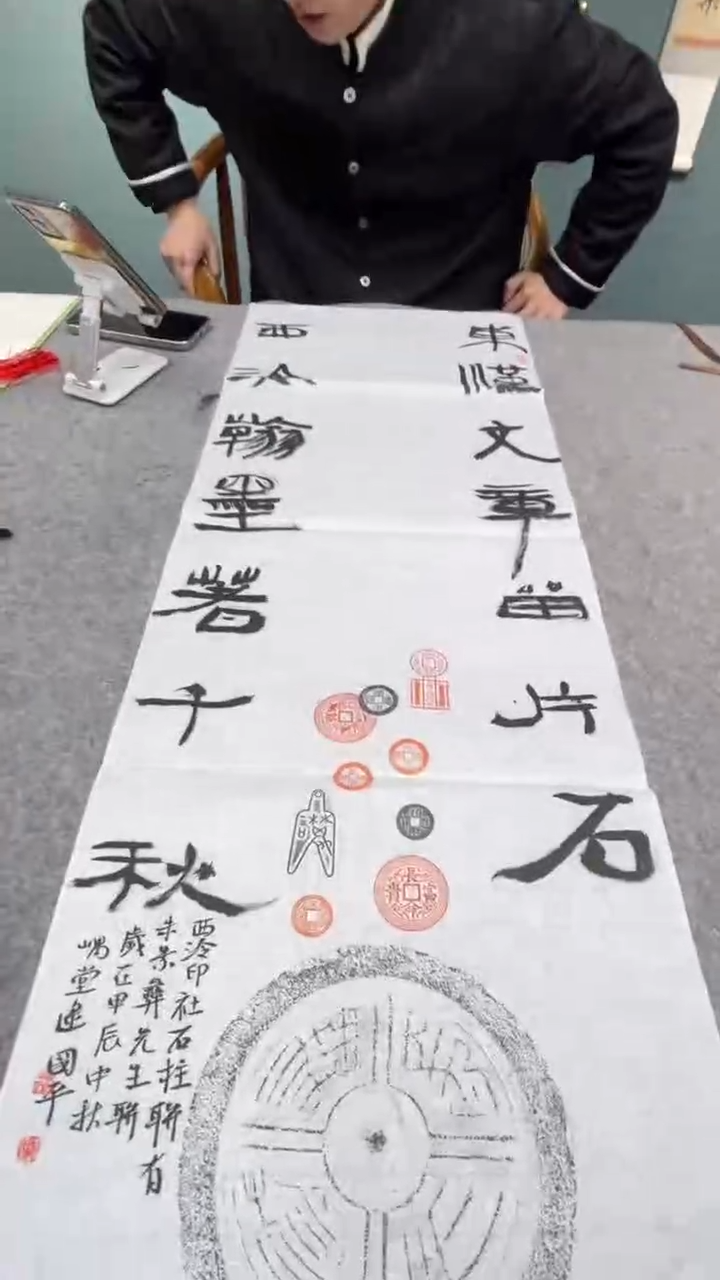 東漢文章留片石
西泠翰墨著千秋
西泠印社石柱聯有
朱景彝先生聯
歲在甲辰中秋
堂國平